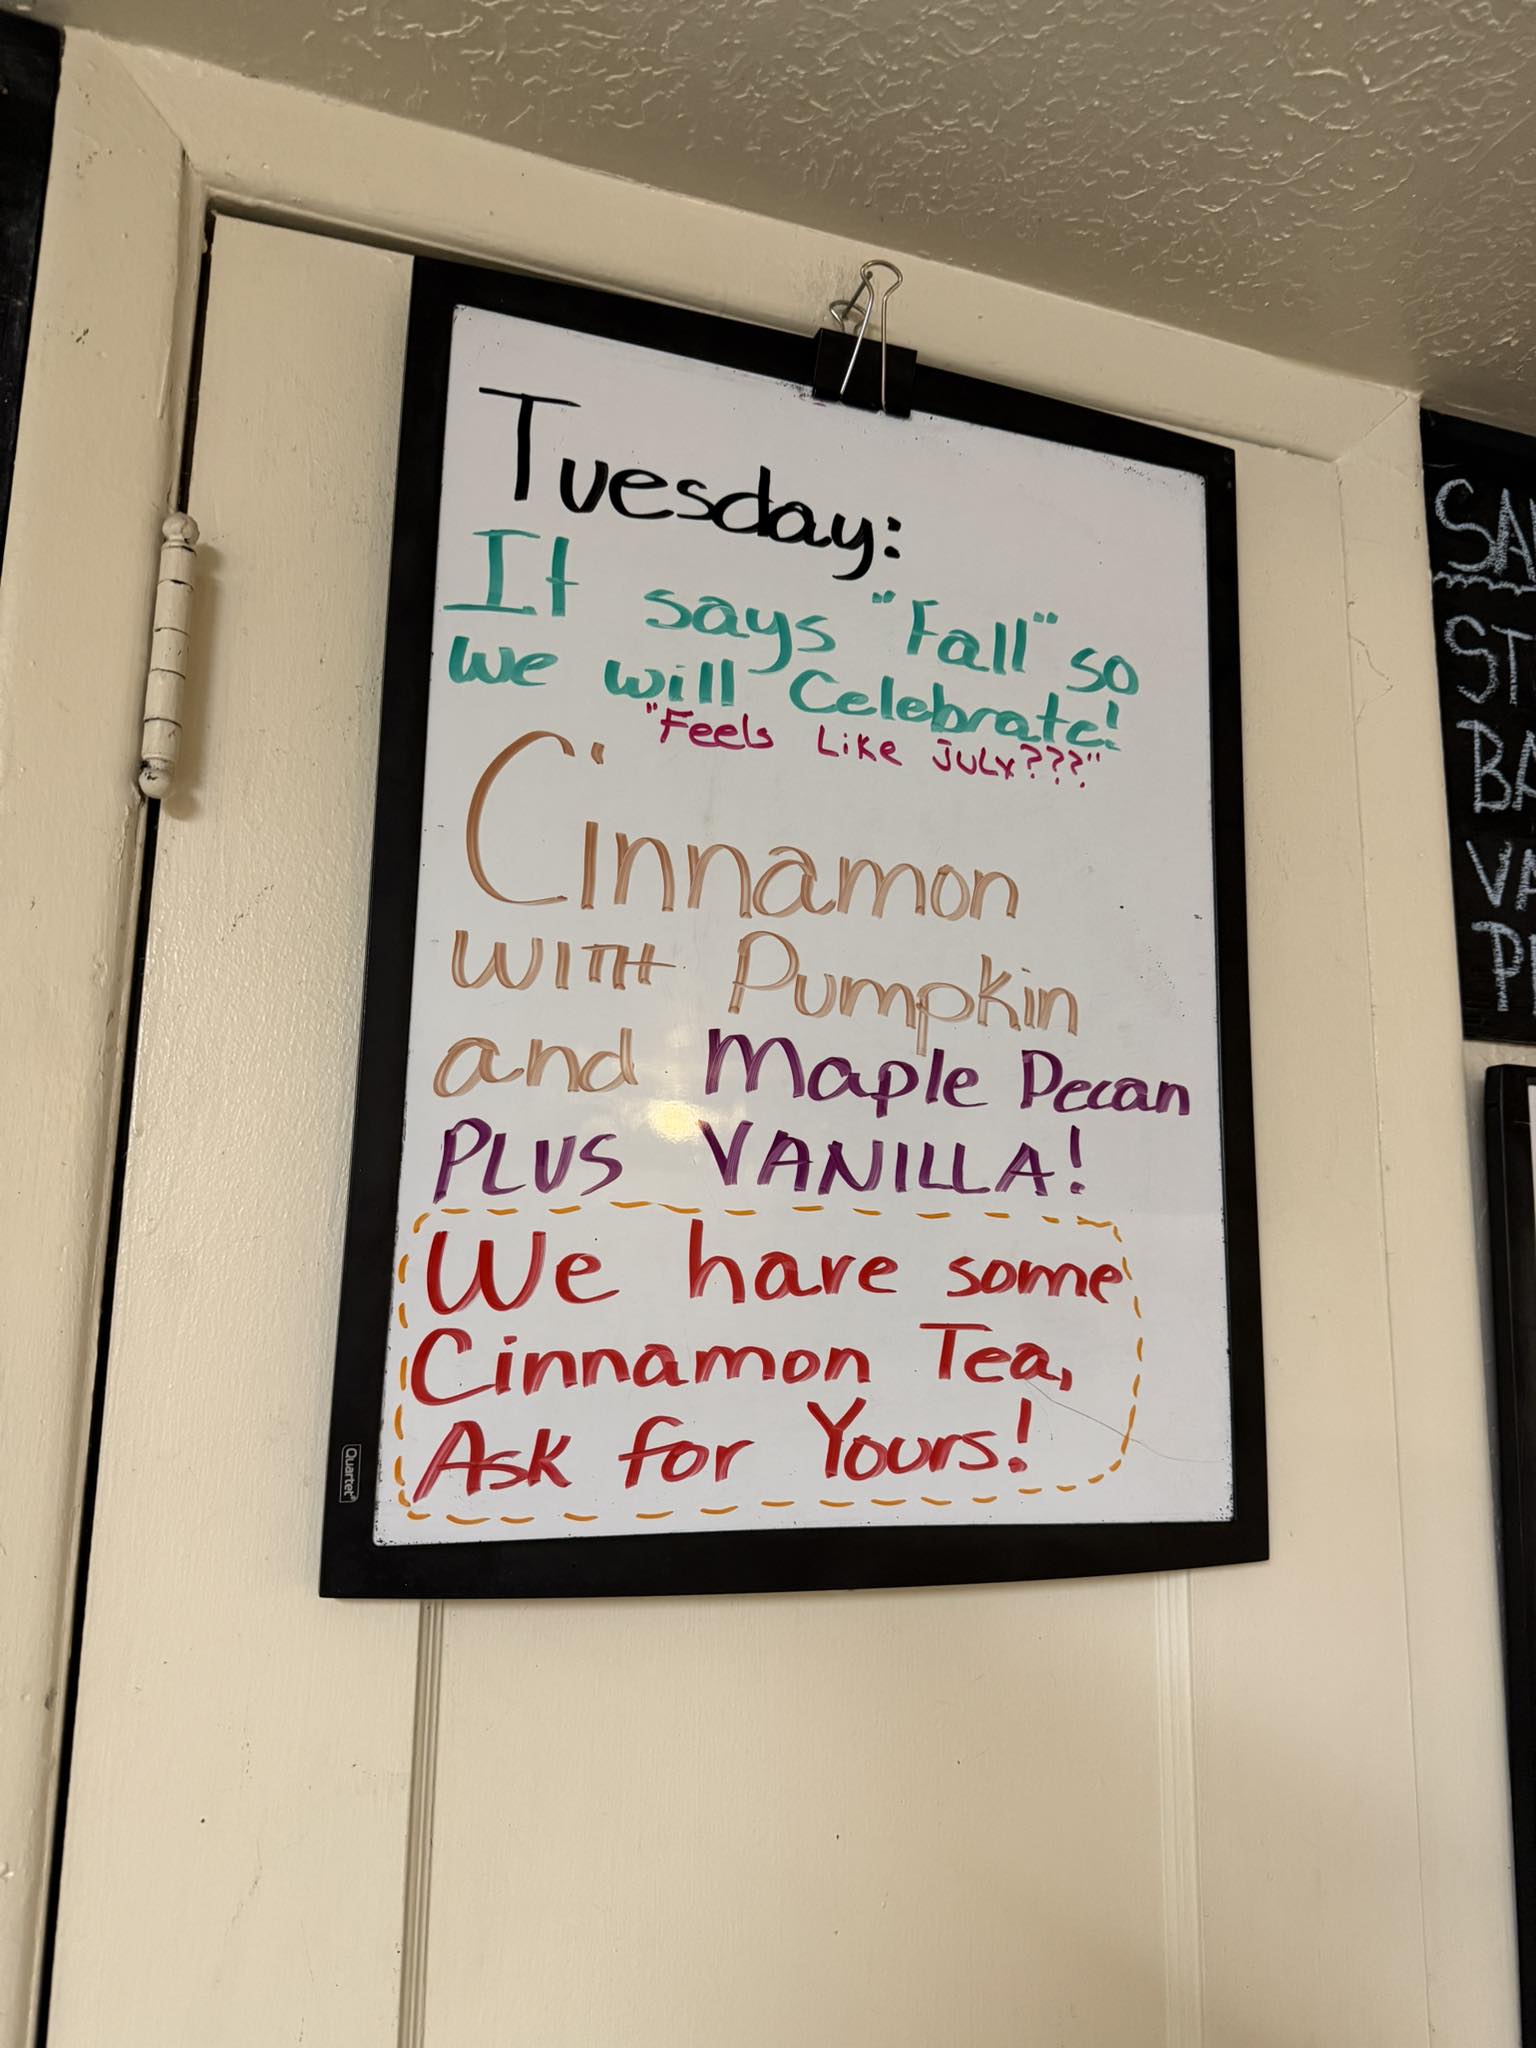 Tuesday:
It says "Fall" so
we will Celebrate!
"Feels Like July???"
Cinnamon
WITH Pumpkin
and Maple Pecan
PLUS VANILLA!
We have some
Cinnamon Tea,
Ask for Yours!
Quartet
SA
ST
BA
VA